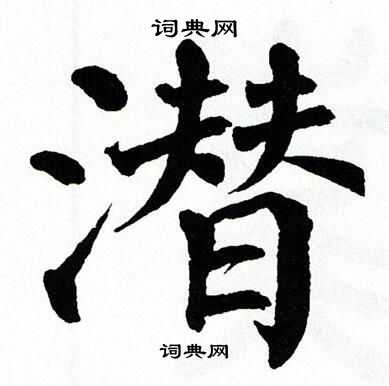 词典网
潜
词典网